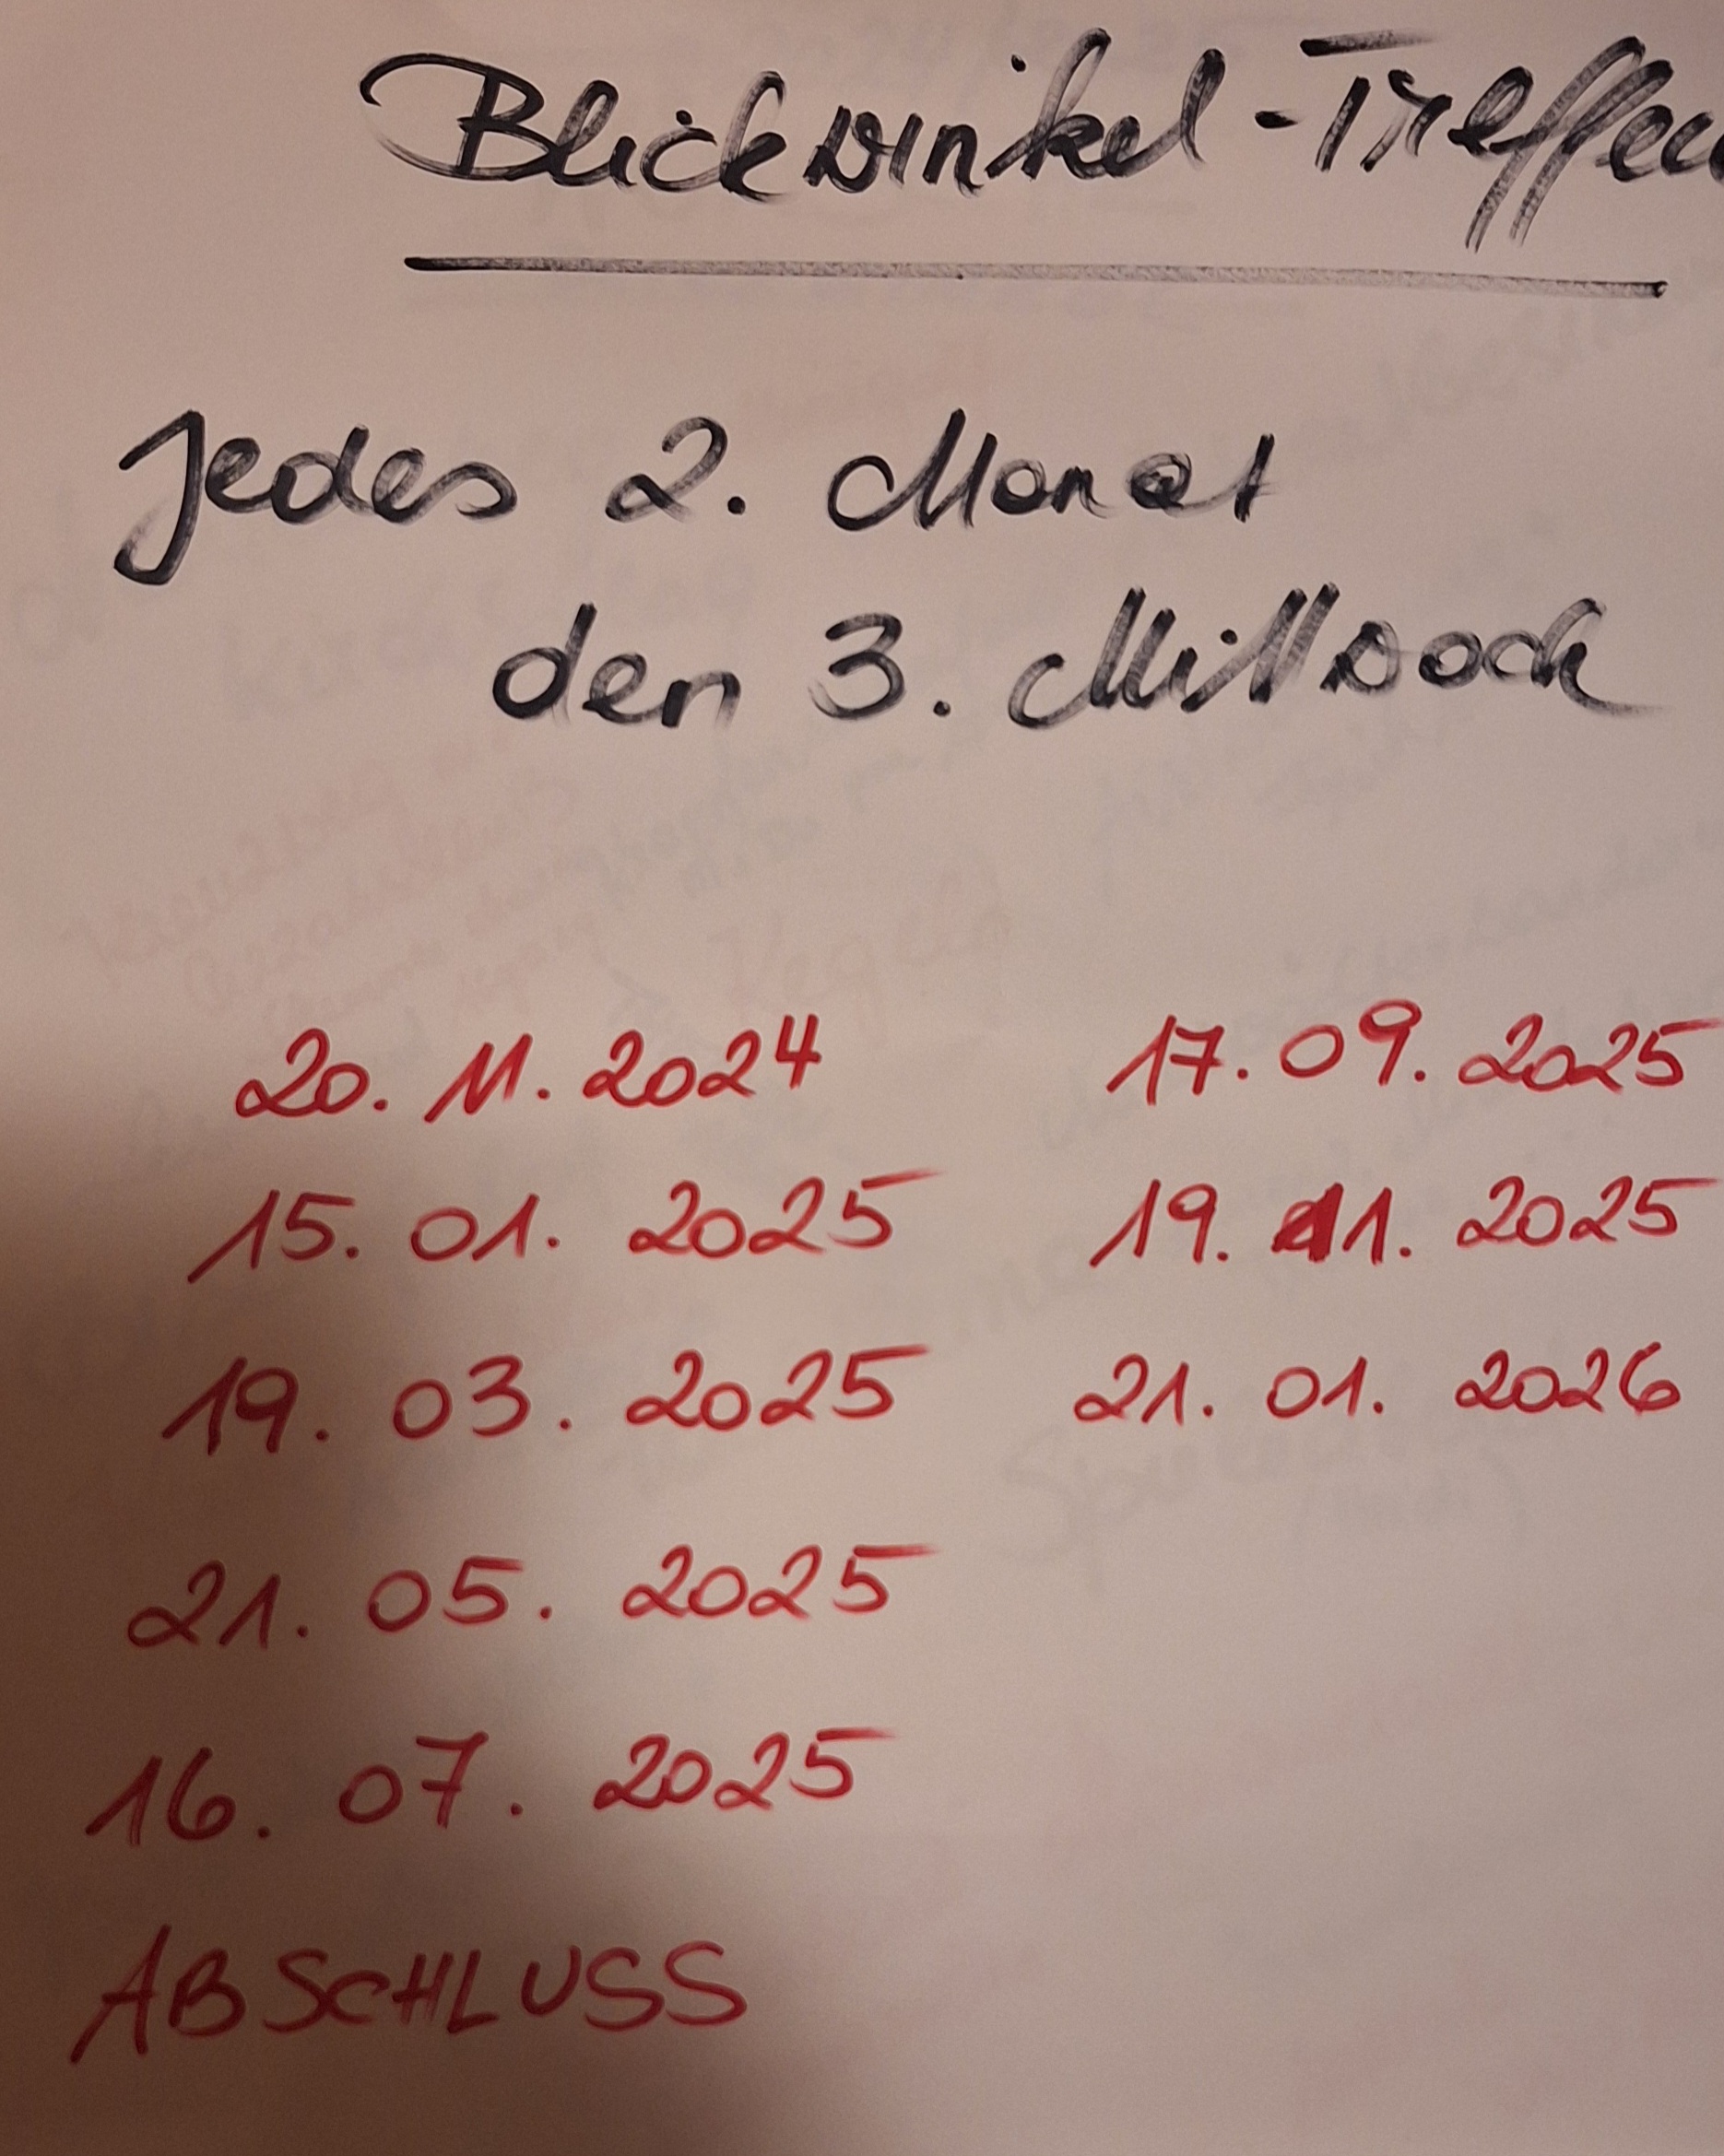 Blickwinkel-Treffen
Jedes 2. Monat
den 3. Mittwoch
20. 11. 2024
15. 01. 2025
19. 03. 2025
21. 05. 2025
16. 07. 2025
ABSCHLUSS
17. 09. 2025
19. 11. 2025
21. 01. 2026